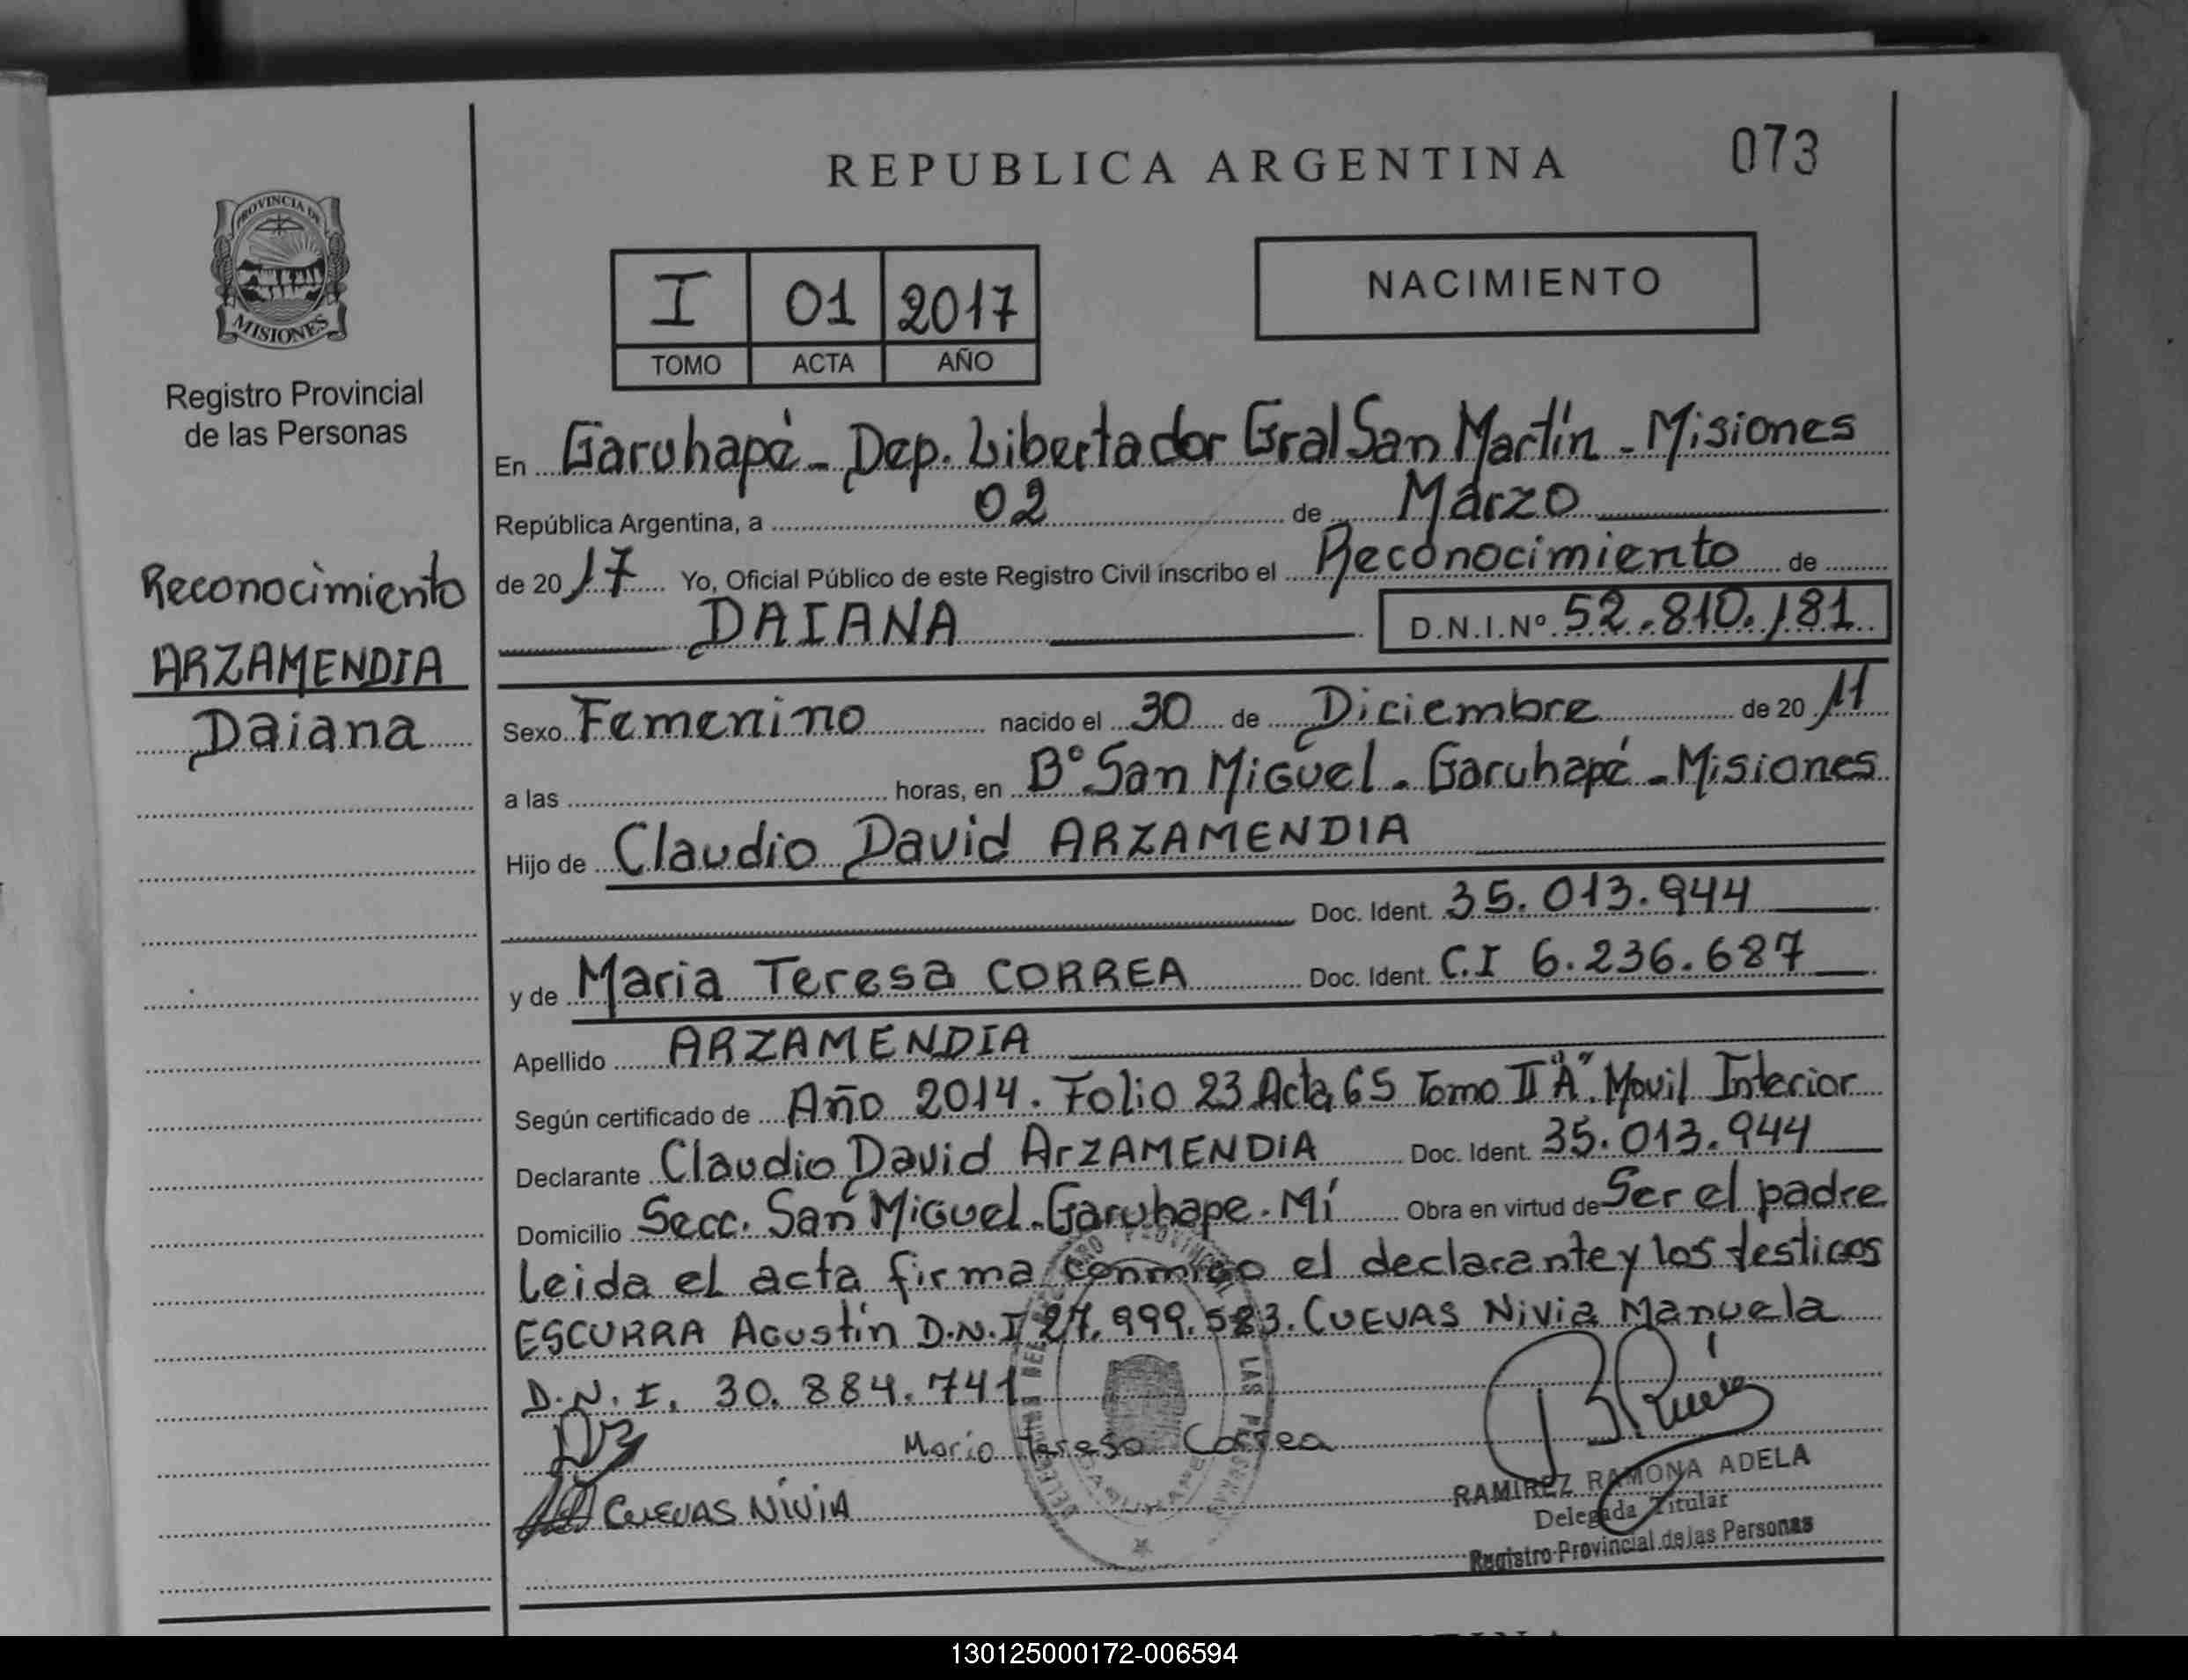 REPUBLICA ARGENTINA
073
PROVINCIA DE
MISIONES
Registro Provincial
de las Personas
I 01 2017
TOMO ACTA AÑO
NACIMIENTO
Reconocimiento
ARZAMENDIA
Daiana
En Garuhapé - Dep. Libertador Gral San Martín - Misiones
República Argentina, a 02 de Marzo
de 2017 Yo, Oficial Público de este Registro Civil inscribo el Reconocimiento de
DAIANA D.N.I.Nº 52.810.181
Sexo Femenino nacido el 30 de Diciembre de 2011
a las horas, en Bº San Miguel - Garuhapé - Misiones
Hijo de Claudio David ARZAMENDIA
Doc. Ident. 35.013.944
y de Maria Teresa CORREA Doc. Ident. C.I 6.236.687
Apellido ARZAMENDIA
Según certificado de Año 2014. Folio 23 Acta 65 Tomo II "A". Movil Interior
Declarante Claudio David ARZAMENDIA Doc. Ident. 35.013.944
Domicilio Secc. San Miguel - Garuhape. Mí Obra en virtud de Ser el padre
leida el acta firma conmigo el declarante y los testigos
ESCURRA Agustín D.N.I 27.999.583. CUEVAS Nivia Manuela
D.N.I. 30.884.741
Maria Teresa Correa
CUEVAS NIVIA
RAMIREZ RAMONA ADELA
Delegada Titular
Registro Provincial de las Personas
130125000172-006594